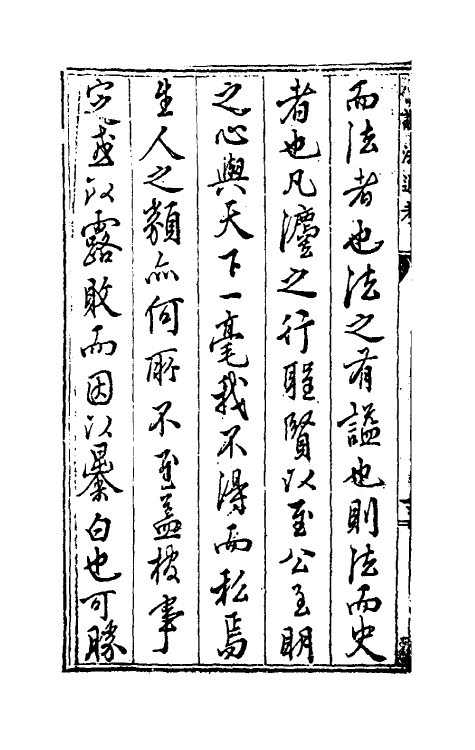 而法者也法之有謚也則法而史
者也凡灋之行聖賢以至公至明
之心與天下一毫我不得而私焉
生人之類亦何所不至蓋校事
定或以露敗而因以㬥白也可勝